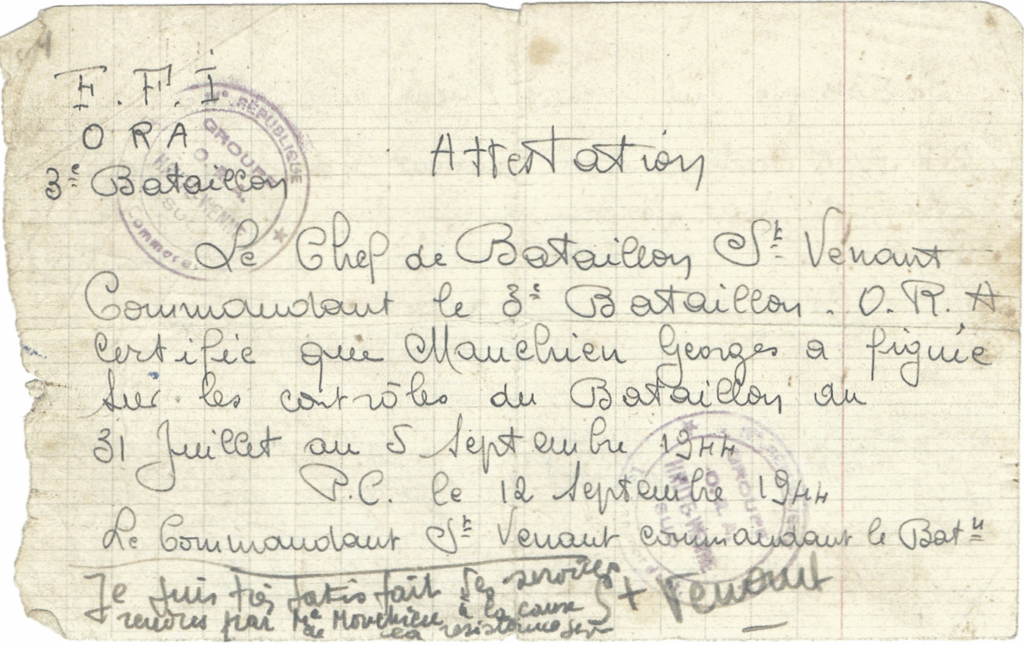 F.F.I
O R A
3e Bataillon
IVe RÉPUBLIQUE
GROUPE
O.R.A.
HAUTE-VIENNE
SUD
Attestation
Le Chef de Bataillon St Venant
Commandant le 3e Bataillon. O.R.A
Certifie que Mauchien Georges a figuré
sur les contrôles du Bataillon du
31 Juillet au 5 Septembre 1944
P.C. le 12 Septembre 1944
GROUPE
O.R.A.
HAUTE-VIENNE
SUD
Le Commandant St Venant commandant le Batn
Je suis très satisfait des services
rendus par Mr à la cause
de la
St Venant